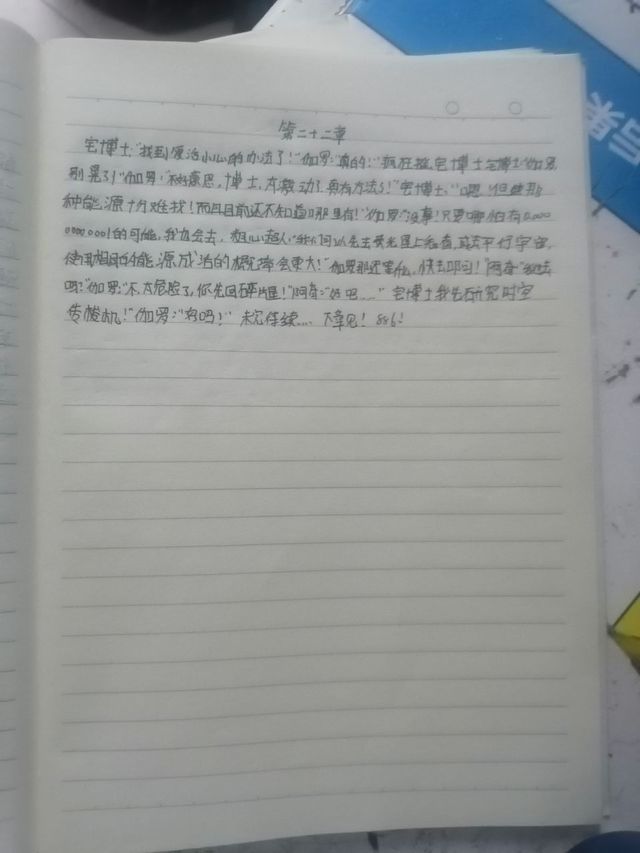 第二十二章
宅博士:"找到复活小心的办法了!"伽罗:"真的!"疯狂摇宅博士宅博士:"伽罗,
别晃了!"伽罗:"不好意思,博士,太激动了真有方法了!"宅博士:"嗯!但是那
种能源十分难找!而且目前还不知道哪里有!"伽罗:"没事!只要哪怕有0.000
0000001的可能,我也会去,粗心超人:"我们可以先去荧光星上看看,再去平行宇宙,
使用相同的能源成活的概率会更大!"伽罗那还等什么,快去叩可!"阿奇:"
吗?"伽罗:"不太危险了,你先回碎片星!"阿奇:"好吧……"宅博士我先研究时空
传梭机!"伽罗:"好吗!" 未完待续…… 下章见! 886!
后果